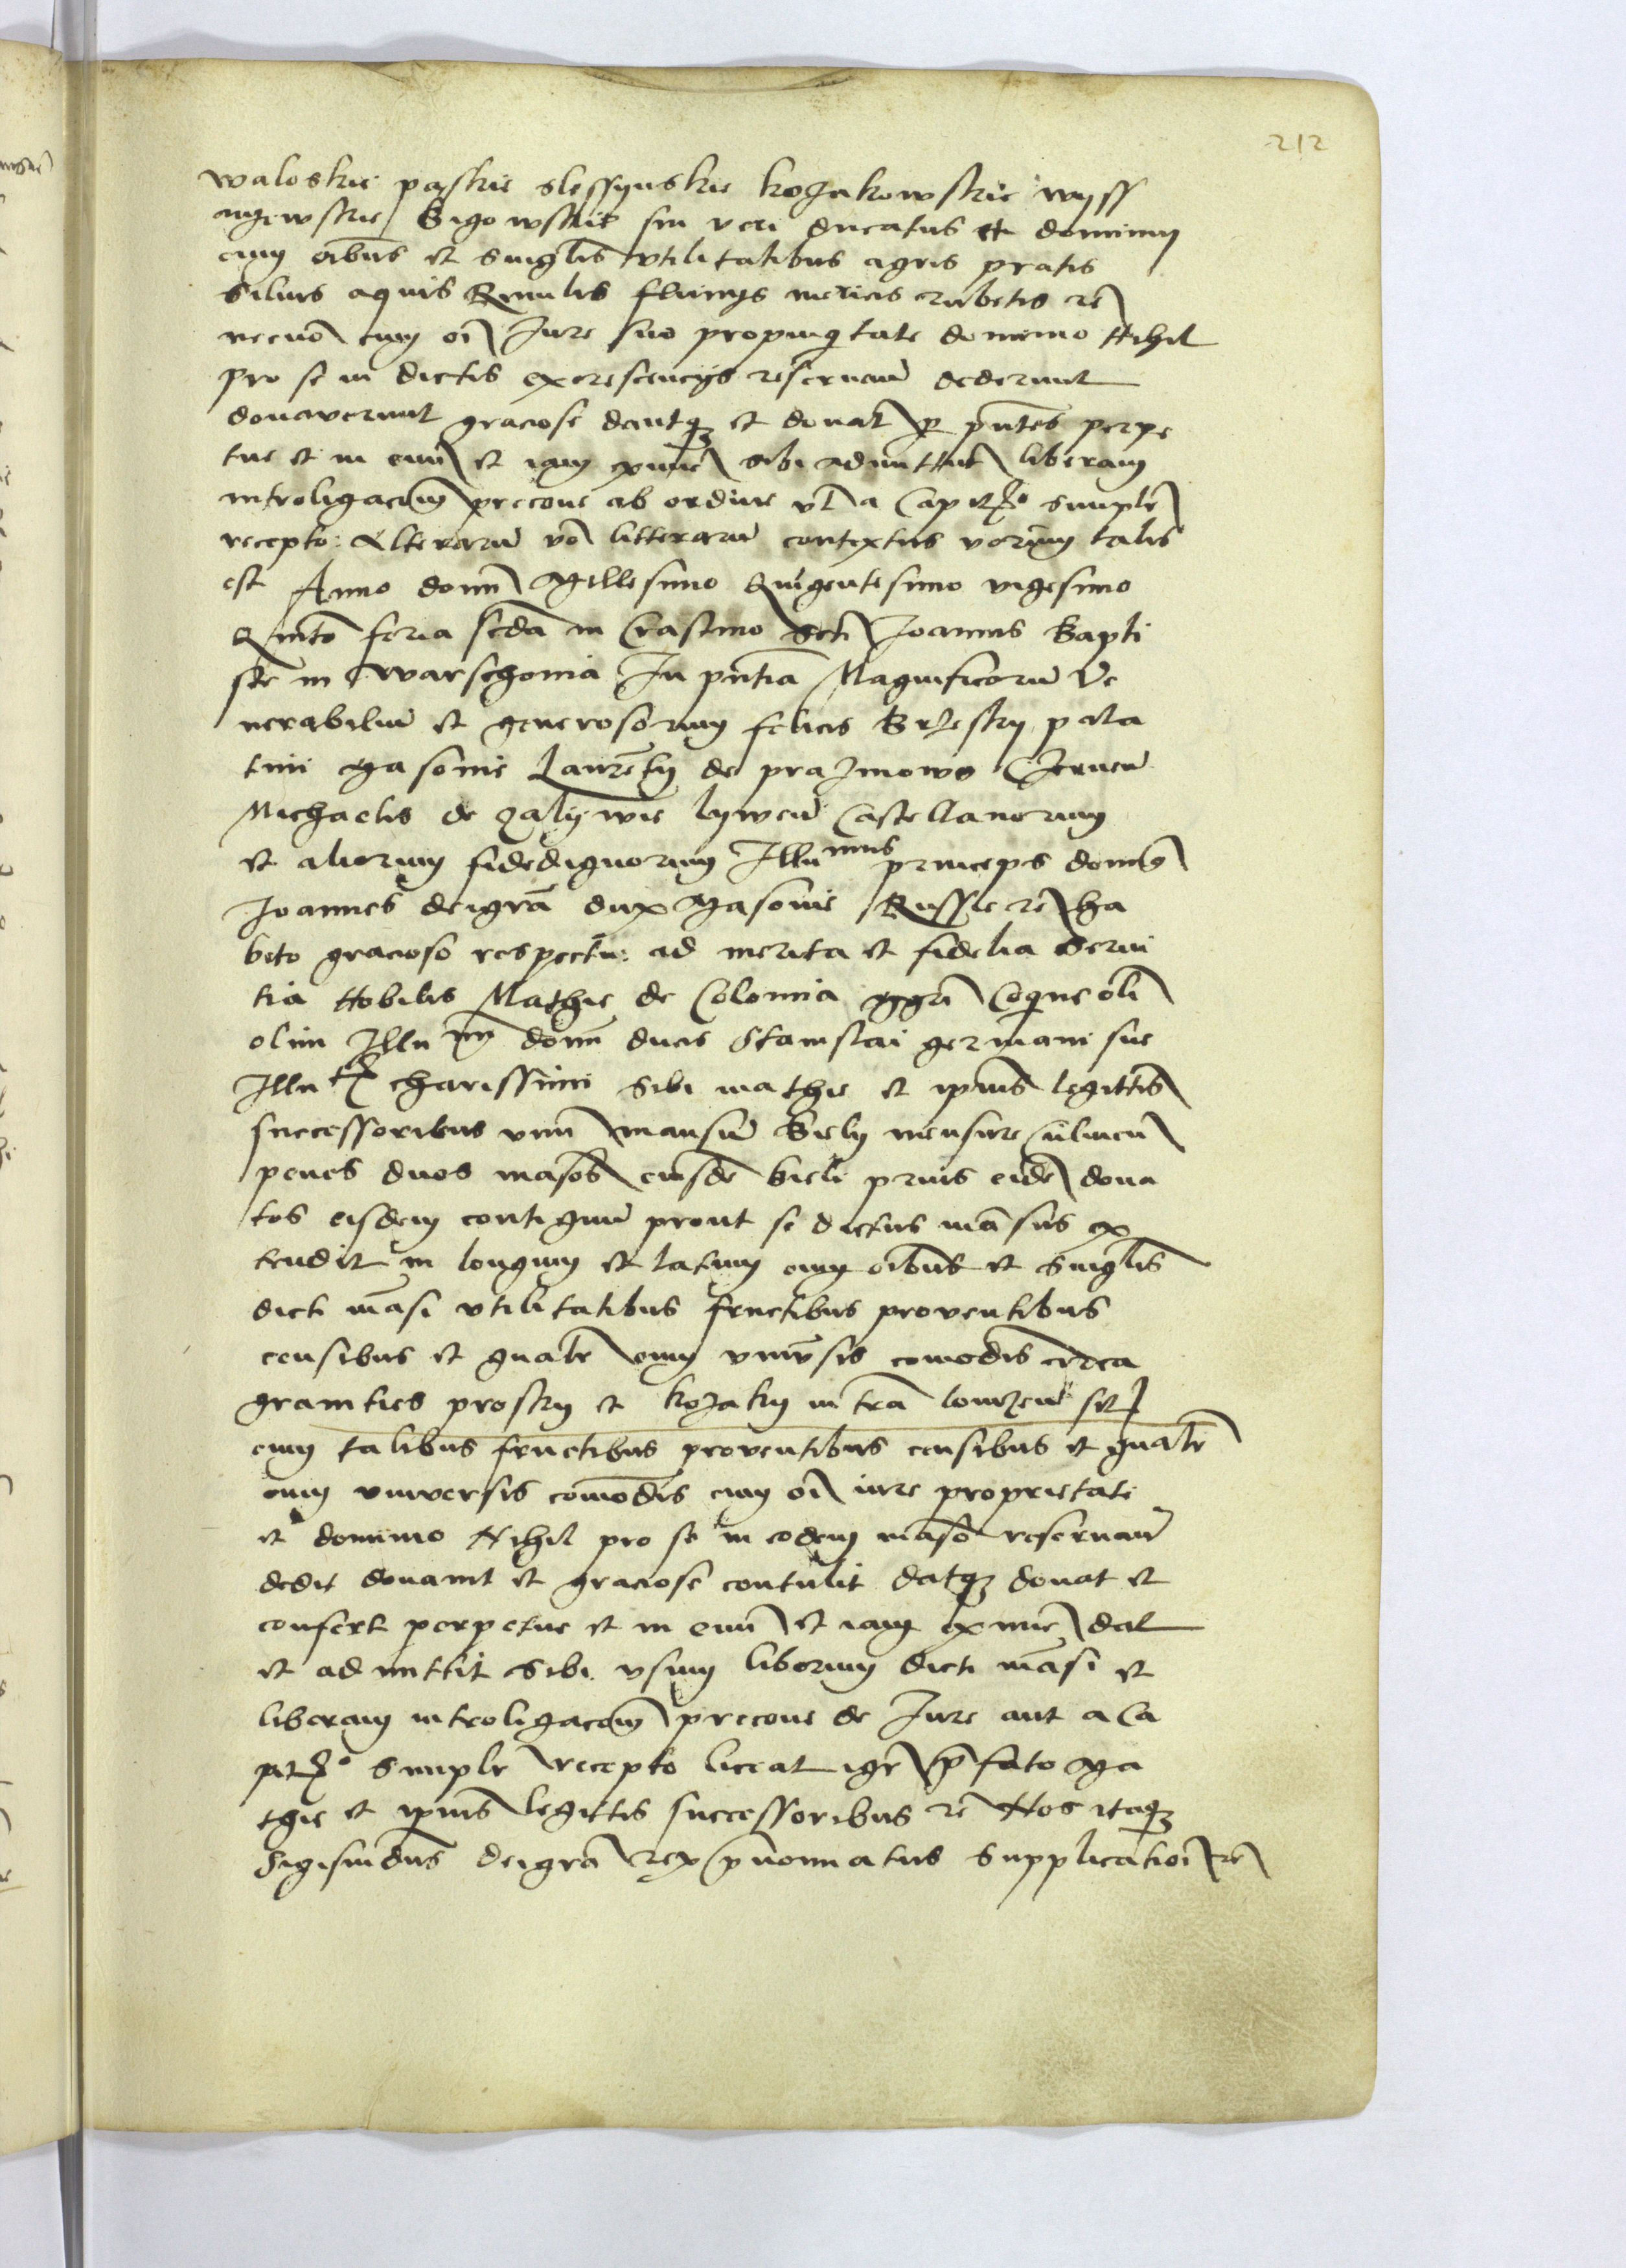 212
waloskie paskie slessynskie kozakowskie wyss
ngewskie Gigowskie sui veri ducatus et dominii
cum oibus et singlis vtilitatibus agris pratis
Siluis aquis Riuulis fluuijs mericis rubetis rc
necnon cum oi Jure suo propinqtate dominio Nihil
pro se in dictis excrescencijs reseruan dederunt
donaverunt graciose dantq et donat p pntes perpe
tue et in euu et iam exnuc sibi admittut liberam
introligacom precone ab ordine vl a Capitzo simplr
recepto: Alteraru vo litteraru contextus verum talis
est Anno domi Millesimo Quigentesimo vigesimo
Qinto feria scda in Crastino Scti Joannis Bapti
ste in Warschouia In pntia Magnificoru Ve
nerabiliu et generosorum felicis Brzesky pala
tini Masouie Laurenty de prazmowo Czernen
Michaelis de Zalywie lywen Castellanorum
et aliorum fidedignorum Illumus princeps doms
Joannes deigra dux Masouie Russie rc ha
bito gracioso respectu: ad merita et fidelia serui
tia Nobilis Mathie de Colomia mgri Coquine oli
olim Illumi domi ducis Stanislai germani sue
Illutx charissimi Sibi mathie et ipius legittis
successoribus vnu mansu Biely mensure Culmen
penes duos masos eiusde bieli prius eide dona
tos eisdem contiguu prout se dictus masus ex
tendit in longum et latum cum oibus et singlis
dicti masi vtilitatibus fructibus prouentibus
censibus et gnalr cum vniusis comodis circa
granities prosky et kozaky in tra lomzen sit
cum talibus fructibus prouentibus censibus et gnalr
cum vniuersis comodis cum oi iure proprietate
et dominio Nihil pro se in eodem maso reseruan
dedit donauit et graciose contulit datq donat et
confert perpetue et in euu et iam exnuc dat
et admittit Sibi vsum liberum dicti masi et
liberam introligacom precone de Jure aut a Ca
pitzo simplr recepto liceat igr pfato Ma
thie et ipius legittis successoribus rc Nos itaq
Sigismdus deigra rex pnominatus supplicatioi rc